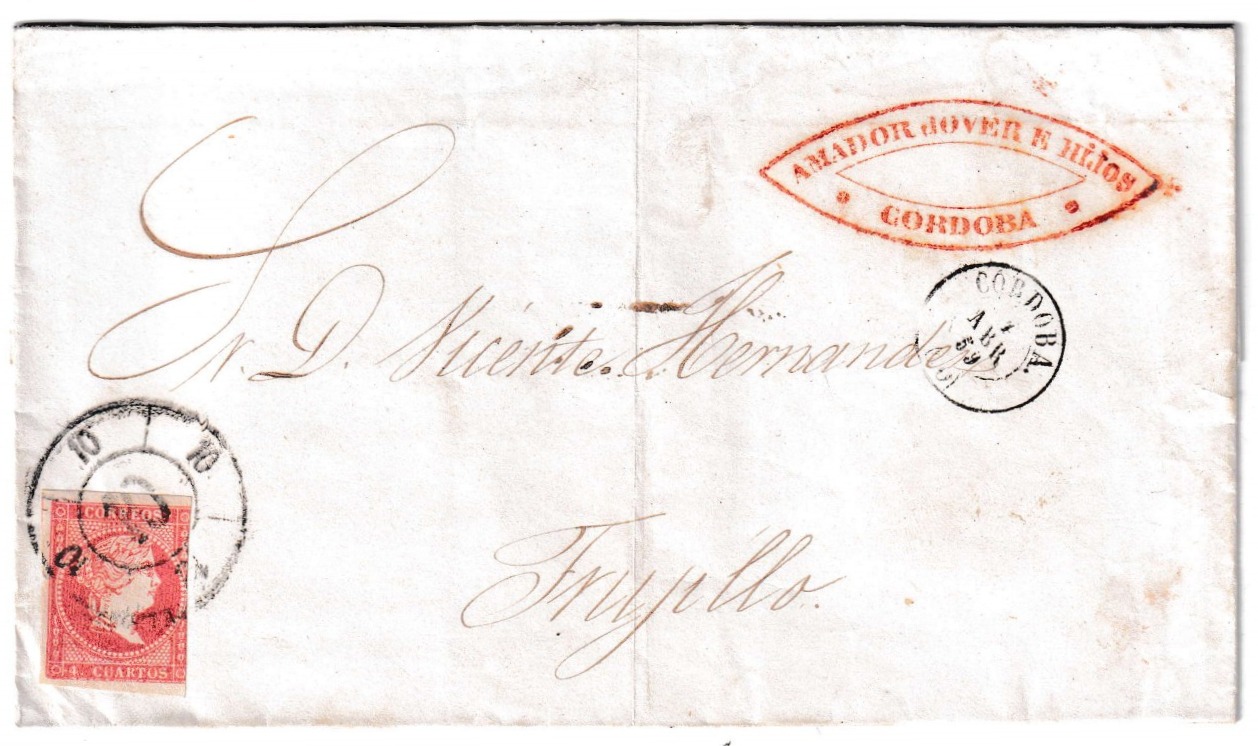 AMADOR JOVER E HIJOS
CORDOBA
CORDOBA.
1
ABR
59
Sr. D. Vicente Hernandez
10 10
10
CORREOS
Trujillo.
4 CUARTOS